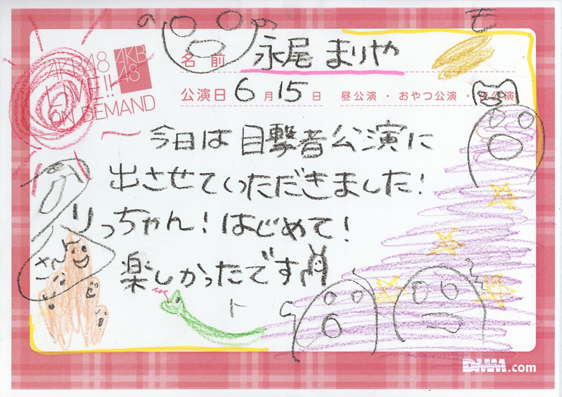 AKB48
LIVE!!
ON DEMAND
AKB
48
名前 永尾 まりや
公演日 6月15日 昼公演・おやつ公演・夜公演
今日は目撃者公演に
出させていただきました!
りっちゃん!はじめて!
楽しかったです
DMM.com